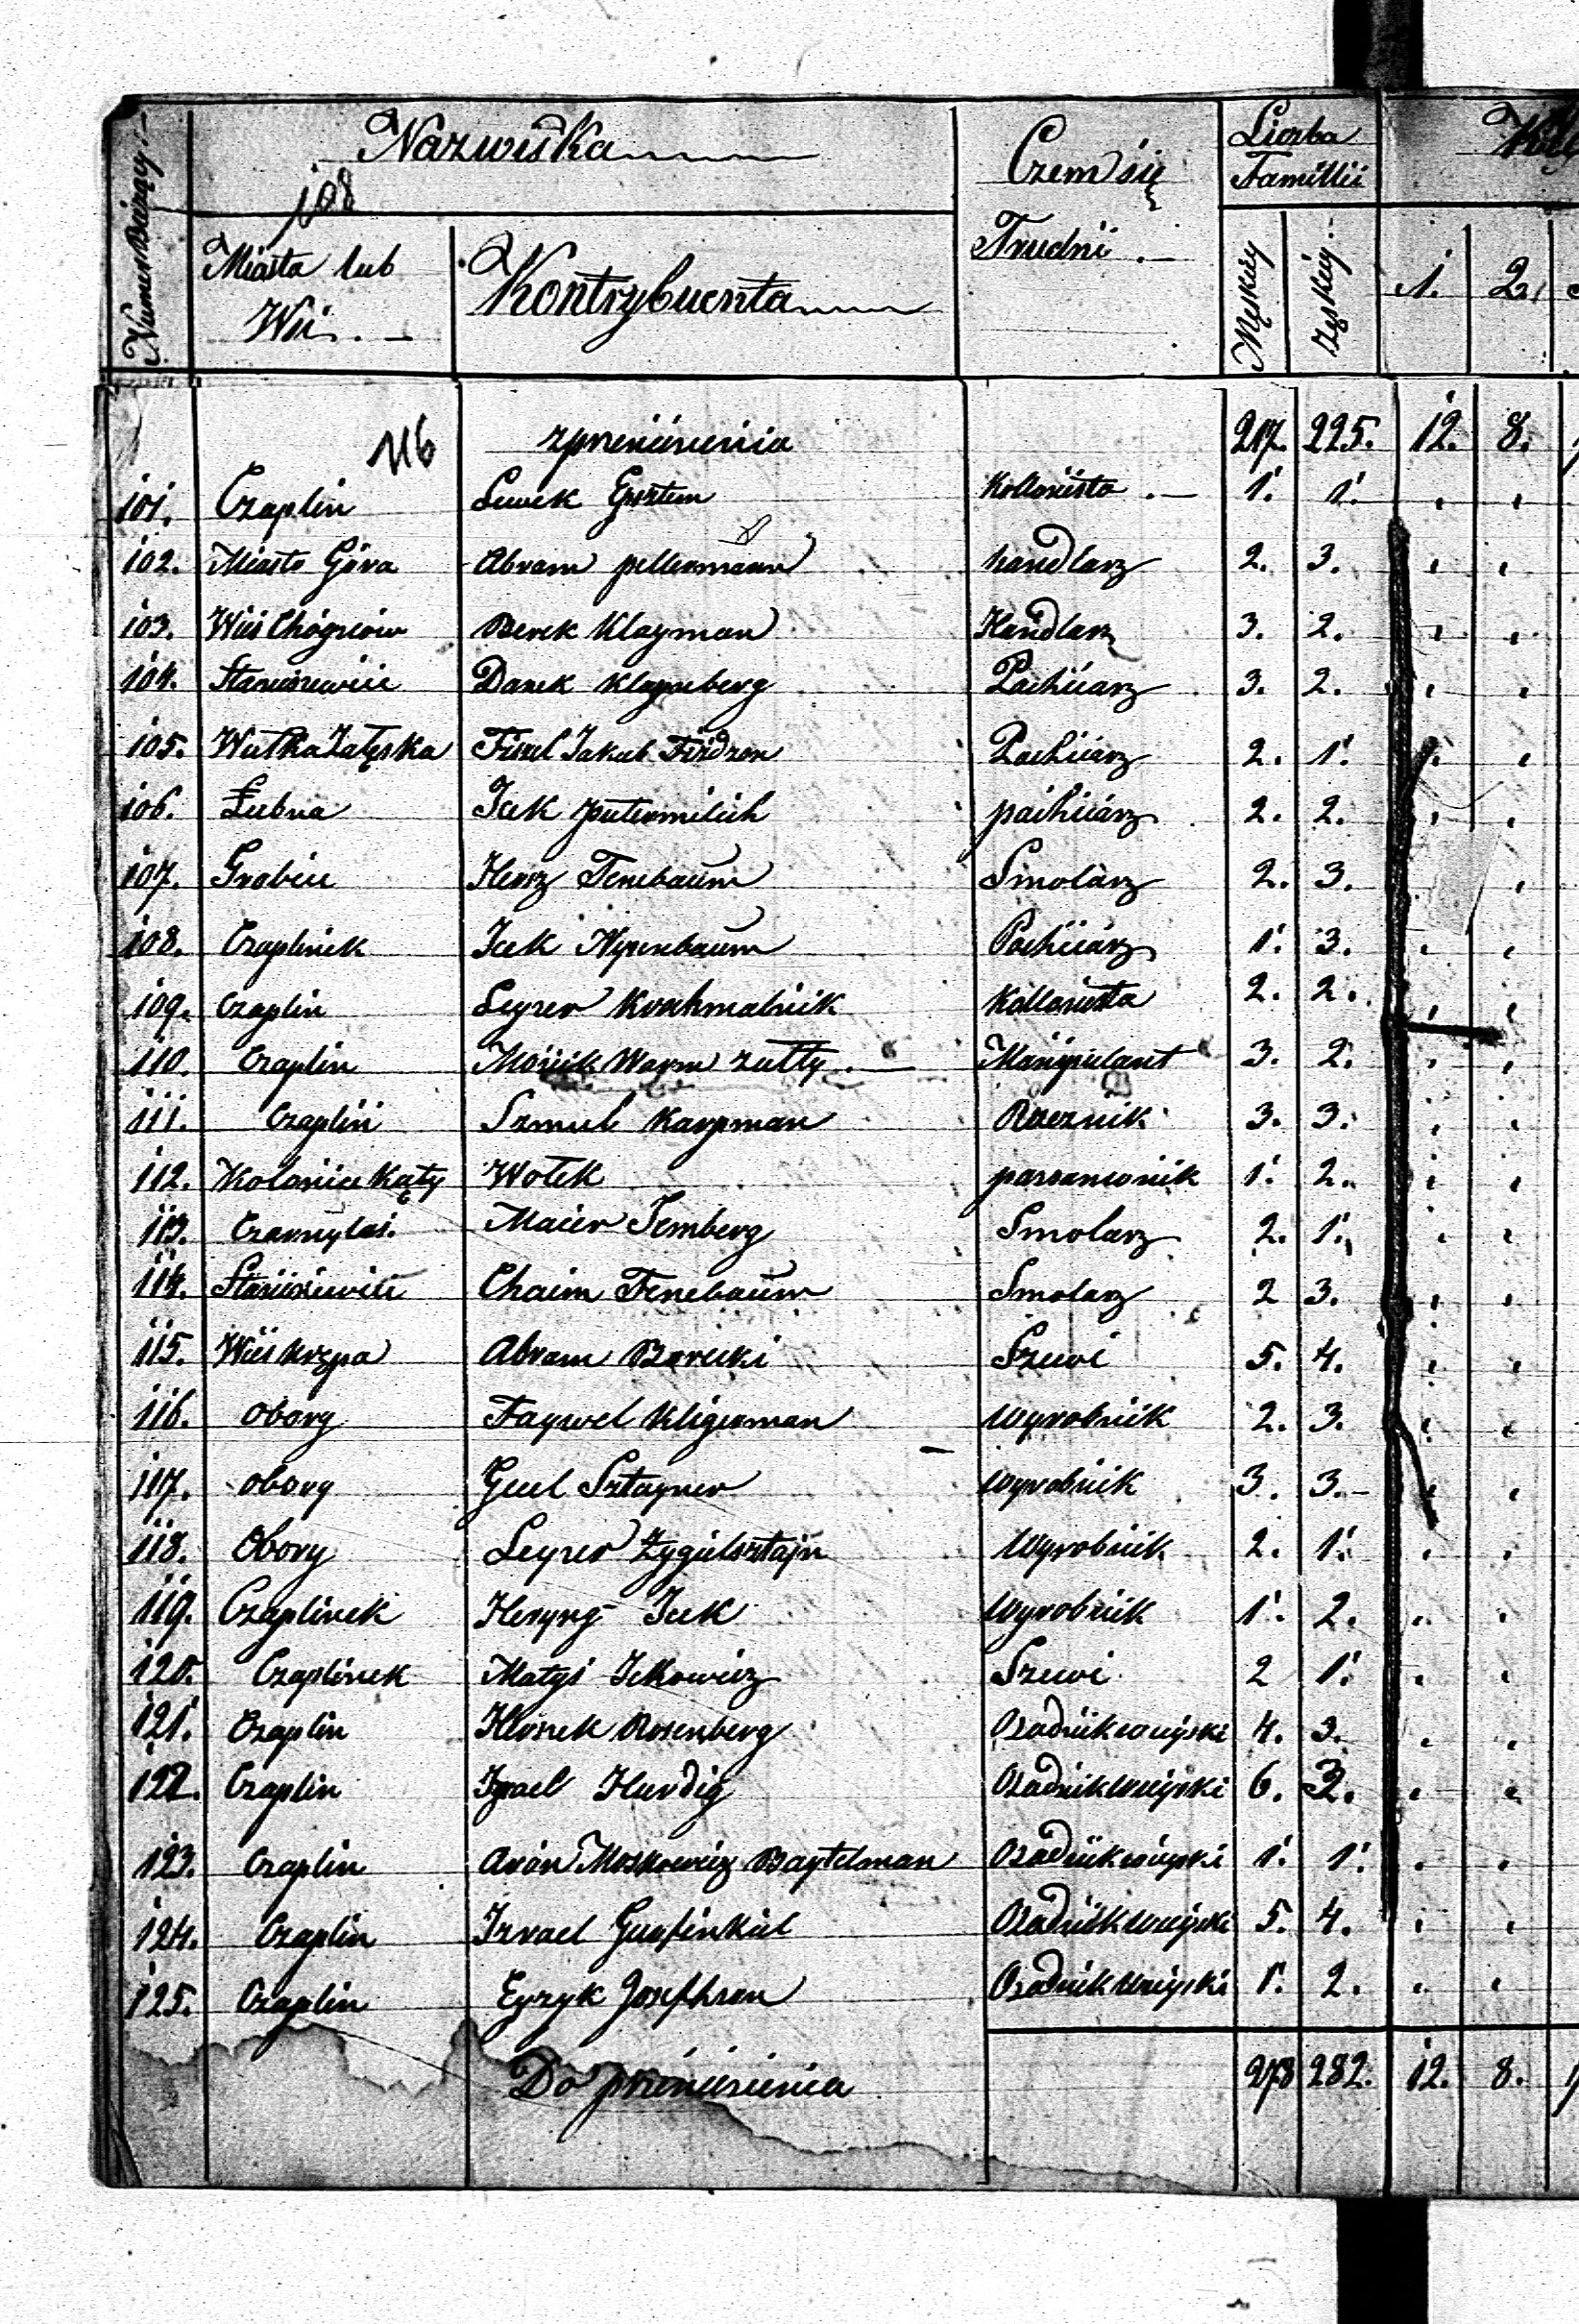 Numer Bieżący.
Nazwiska
108
Miasta lub Wii.
Kontrybuenta
Czem się Trudni.
Liczba Familii
Męskiey
żęskiey
1. 2.
116 zprzeniesienia 217. 225. 12. 8.
101. Czaplin Lewek Kollonista. 1. 1.
102. Miasto Góra Abram pellermann handlarz 2. 3.
103. Wieś Chógrców Berek Klayman Handlarz 3. 2.
104. Staniszewice Danek Klaynberg Pachciarz 3. 2.
105. Wulka Załęska Fiszel Jakub Pachciarz 2. 1. 1.
106. Łubna Icek putermilich pachciarz 2. 2.
107. Grobice Hersz Tenebaum Smolarz 2. 3.
108. Czaplinek Icek Nyrenbaum Pachciarz 1. 3.
109. Czaplin Leyzer Krochmalnik Kollonista 2. 2.
110. Czaplin Mosiek Warm zutty. Manipulant 3. 2.
111. Czaplin Szmul Karpman Rzeznik 3. 3.
112. Kolonia Kąty Wolek 1. 2.
113. Czarnylas. Maier Temberg Smolarz 2. 1.
114. Staniszewice Chaim Tenebaum Smolarz 2 3.
115. Wieś Krzpa Abram Borucki Szewc 5. 4.
116. obory Faywel Kligerman wyrobnik 2. 3.
117. obory Gecel Sztayner wyrobnik 3. 3.
118. Obory Leyzer Zygielsztajn Wyrobnik 2. 1.
119. Czaplinek Heryng Icek Wyrobnik 1. 2.
120. Czaplinek Matys Ickowicz Szewc 2 1.
121. Czaplin Herszek Rosenberg Osadnik wieyski 4. 3.
122. Czaplin Izrael Hurdig Osadnik wieyski 6. 3.
123. Czaplin Aron Moskowicz Baytelman Osadnik wieyski 1. 1.
124. Czaplin Izrael Gurfinkiel Osadnik wieyski 5. 4.
125. Czaplin Eyzyk Josephson Osadnik wieyski 1. 2.
Do przeniesienia 278 282. 12. 8.